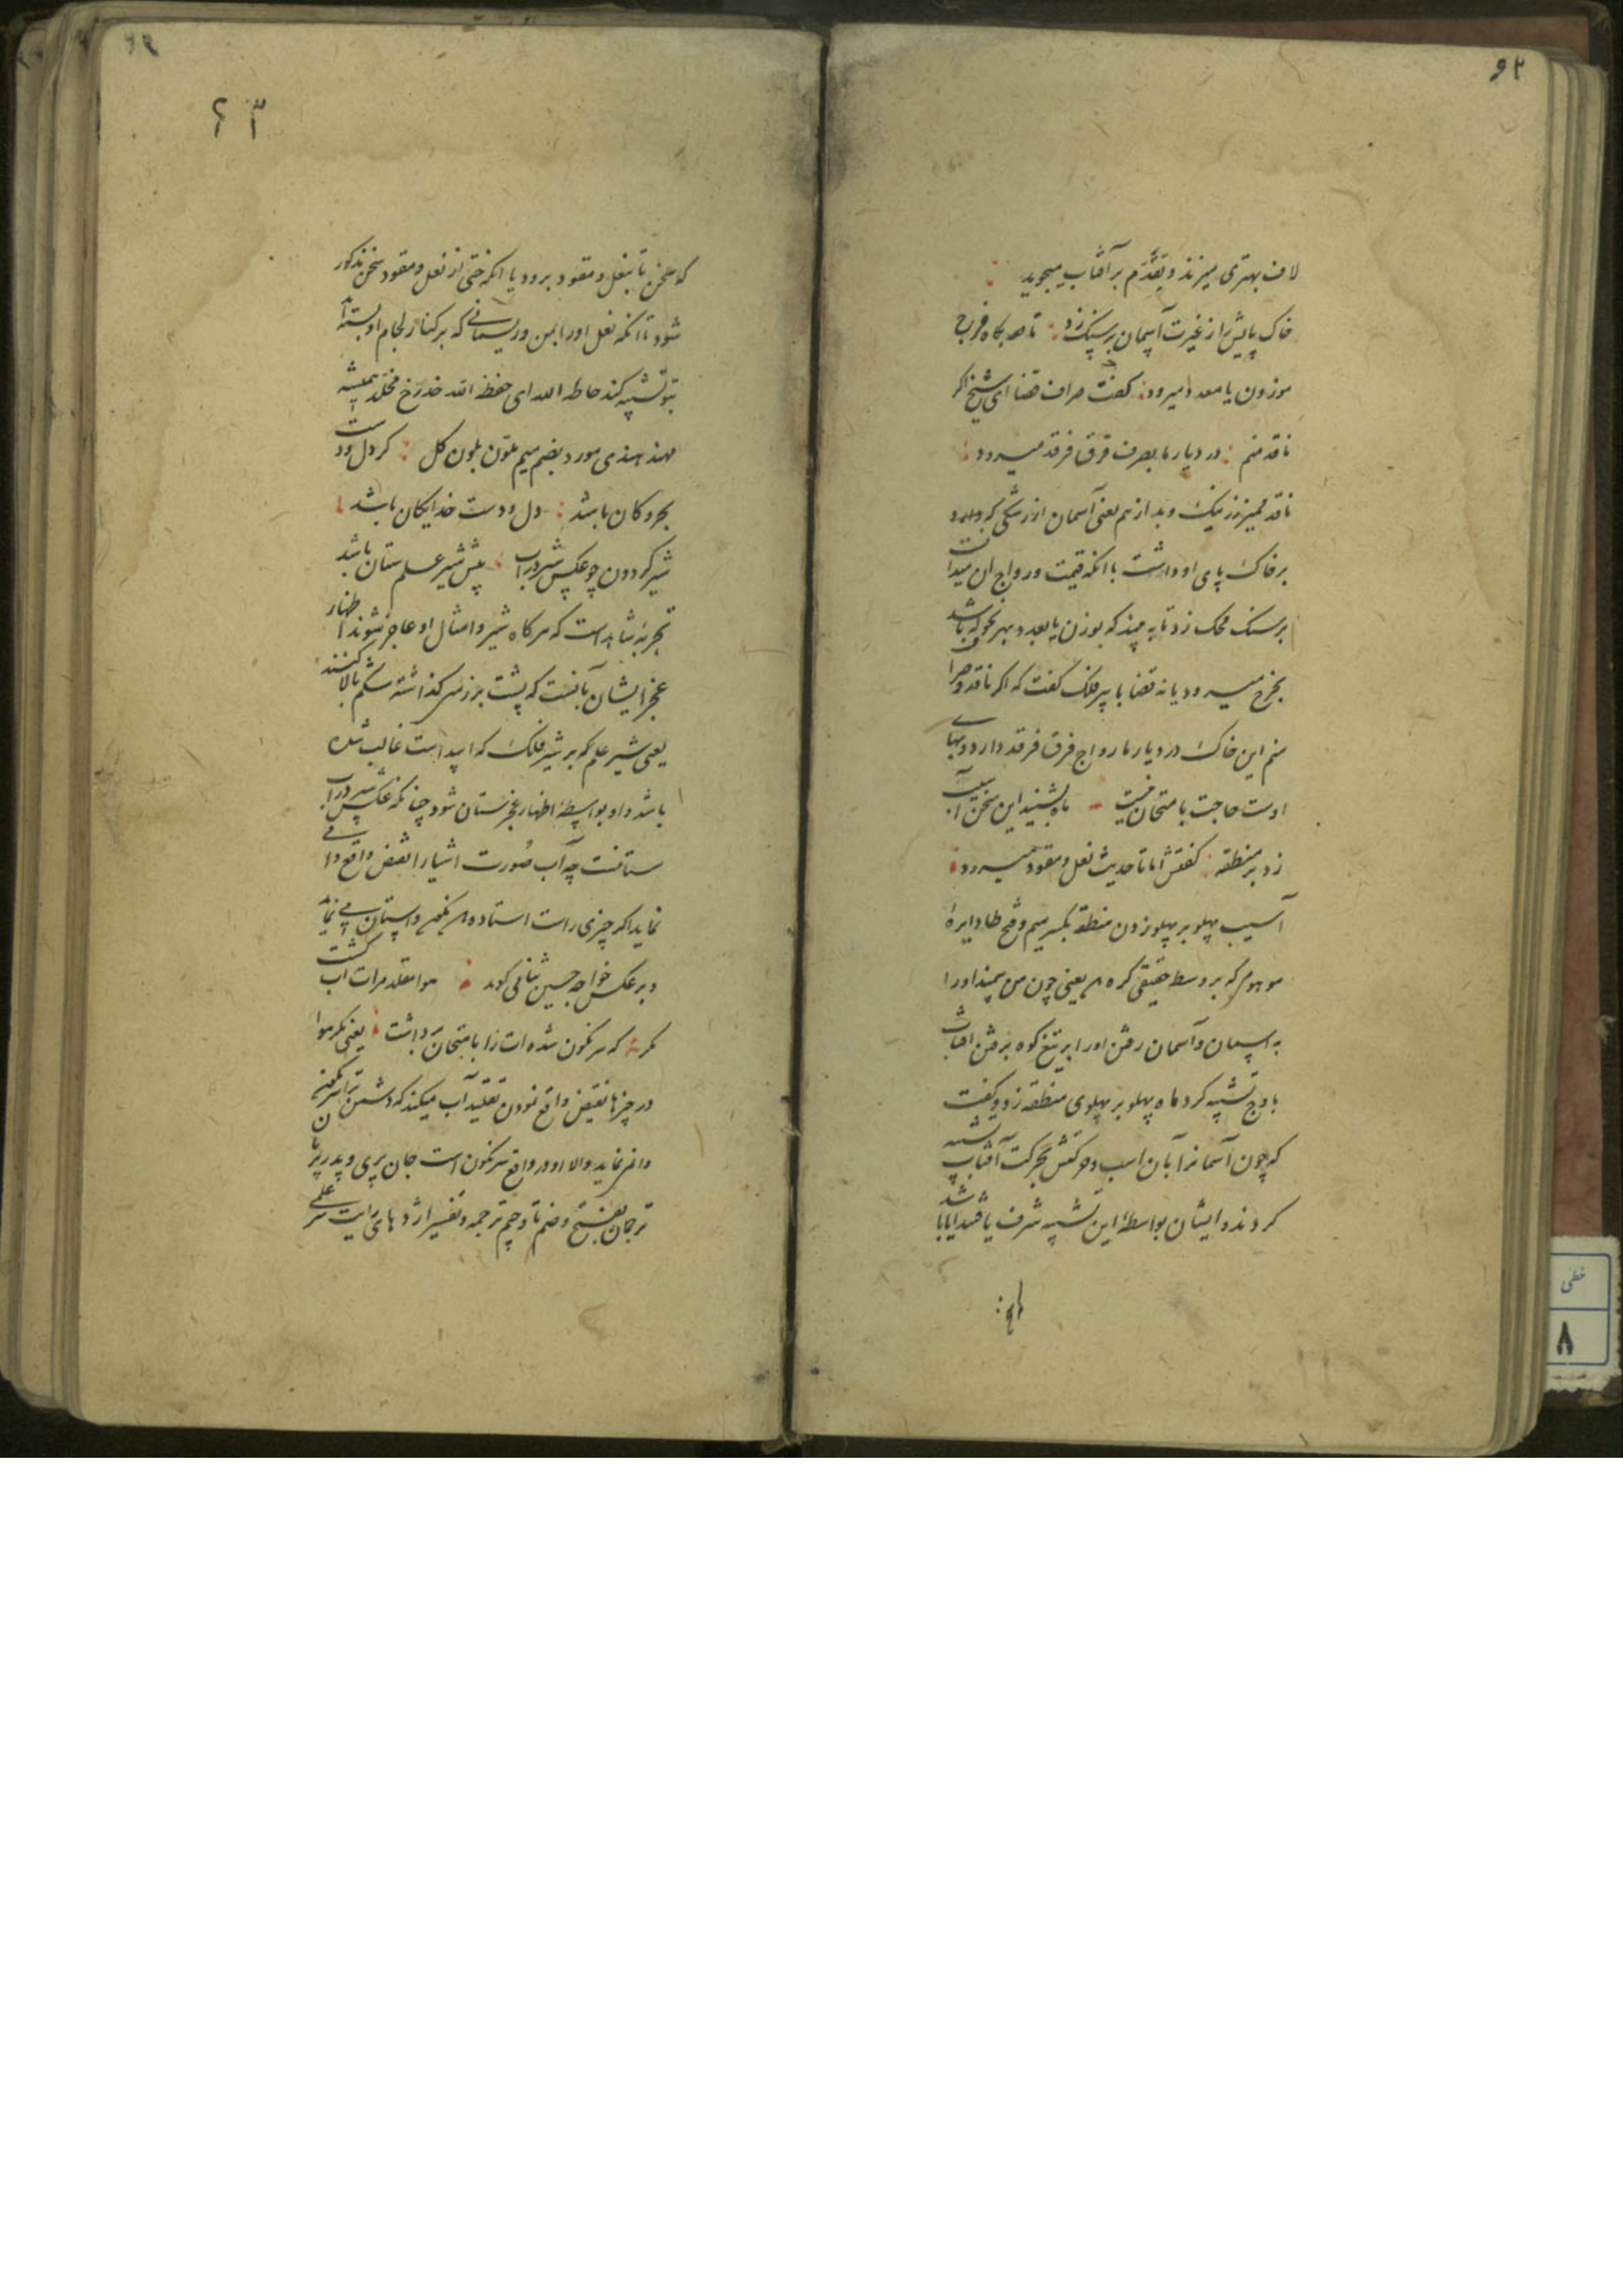 ۶۲
لاف بهتری میزند و تقدّم بر آفتاب میجوید
خاک پایش را از غیرت آسمان بر سنک زد تا
موزون یا معدد میرود کفت صراف قضا ای شیخ اکر
ناقد منم در دیار ما بصرف فرق فرقد میرود
ناقد تمیز زر نیک و بد از هم یعنی آسمان از رشکی که
بر خاک پای او داشت با انکه قیمت و رواج ان میدانست
بر سنک محک زد تا به بیند که بوزن یا بعدد بهر نحو که باشد
بخرج میرود یا نه قضا با پیر فلک کفت که اکر ناقد و صراف
منم این خاک در دیار ما رواج فرق فرقد دارد و بهای
اوست حاجت بامتحان نیست ماه بشنید این سخن آسیب
زد بر منطقه کفتش اما تا حدیث نعل و مقود میرود
آسیب پهلو بر پهلو زدن منطقه بکسر میم و فتح طا دایرهٔ
موهوم که بر وسط حقیقی کره یعنی چون من بیند او را
به اسمان و آسمان رفتن او را بر تیغ کوه برفتن افتاب
باوج تشبیه کرد ماه پهلو بر پهلوی منطقه زد و کفت
که چون آسمانرا بآن اسب و حرکتش بحرکت آفتاب تشبیه
کردند و ایشان بواسطهٔ این تشبیه شرف یافتند ایا باشد
که سخن
۶۳
که سخن تا بنعل و مقود برود یا انکه حتی از نعل و مقود سخن مذکور
شود تا انکه نعل او را بمن و ریسمانی که بر کنار لجام او بسته‌اند
بتو تشبیه کند حاطه الله ای حفظه الله خد رخ مخلد همیشه
مهند هندی مورد بضم میم ملون بلون کل کر دل و دست
بحر و کان باشد دل و دست خدایکان باشد
شیر کردون چو عکس شیر در آب پیش شیر علم ستان باشد
تجربه شاهد است که هر کاه شیر و امثال او عاجز شوند اظهار
عجز ایشان بآنست که پشت بر زمین کذاشته شکم بالا کنند
یعنی شیر علم که بر شیر فلک که اسد است غالب شده
باشد و او بواسطهٔ اظهار عجز ستان شود چنانکه عکس شیر در آب
ستانست چه آب صورت اشیا را نقیض واقع وا می
نماید اکر چیزی راست استاده و ستان می نماید
و بر عکس خواجه حسین ثنائی کوید هوا مقلد مرات اب کشت
مکر که سرنکون شده‌ات را بامتحان برداشت یعنی مکر هوا
در چیزها نقیض واقع نمودن تقلید آب میکند که دشمن سرنکون ترا
وا نماید والا او در واقع سرنکون است جان پری و پدر پری
ترجمان بفتح و ضم تا و جیم ترجمه و تفسیر اژدهای رایت علی
خطی
۸